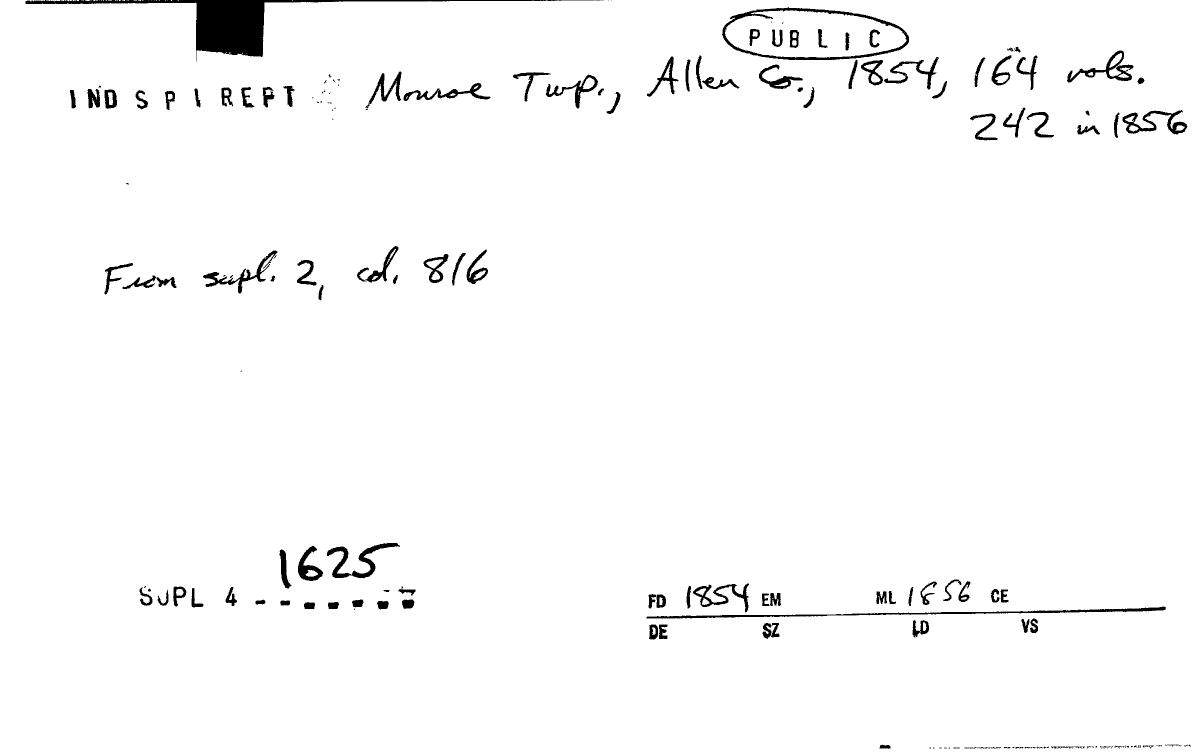 PUBLIC
IND SPI REPT Monroe Twp., Allen Co., 1854, 164 vols.
242 in 1856
From supl. 2, col. 816
1625
SUPL 4 - - - - - - -
FD 1854 EM ML 1856 CE
DE SZ LD VS